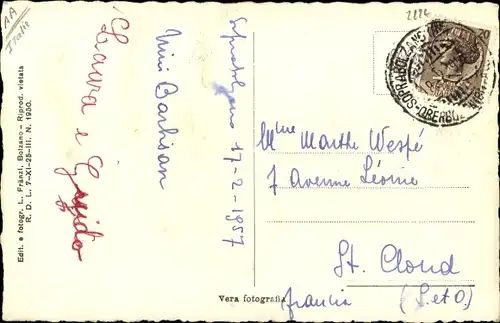 AA
Italie
2222
Edit. e fotogr. L. Fränzl, Bolzano - Riprod. vietata
R. D. L. 7-XI-25-III. N. 1950.
Laura e Guido
Soprabolzano 17-2-1957
Vera fotografia
20
Mme Marthe Wespé
7 Avenue Léonie
St. Cloud
Francia (S. et O.)